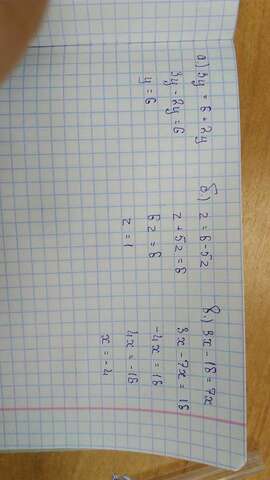 а) 3y = 6 + 2y
3y - 2y = 6
y = 6
б) z = 6 - 5z
z + 5z = 6
6z = 6
z = 1
в.) 3x - 18 = 7x
3x - 7x = 18
-4x = 18
4x = -18
x = -4